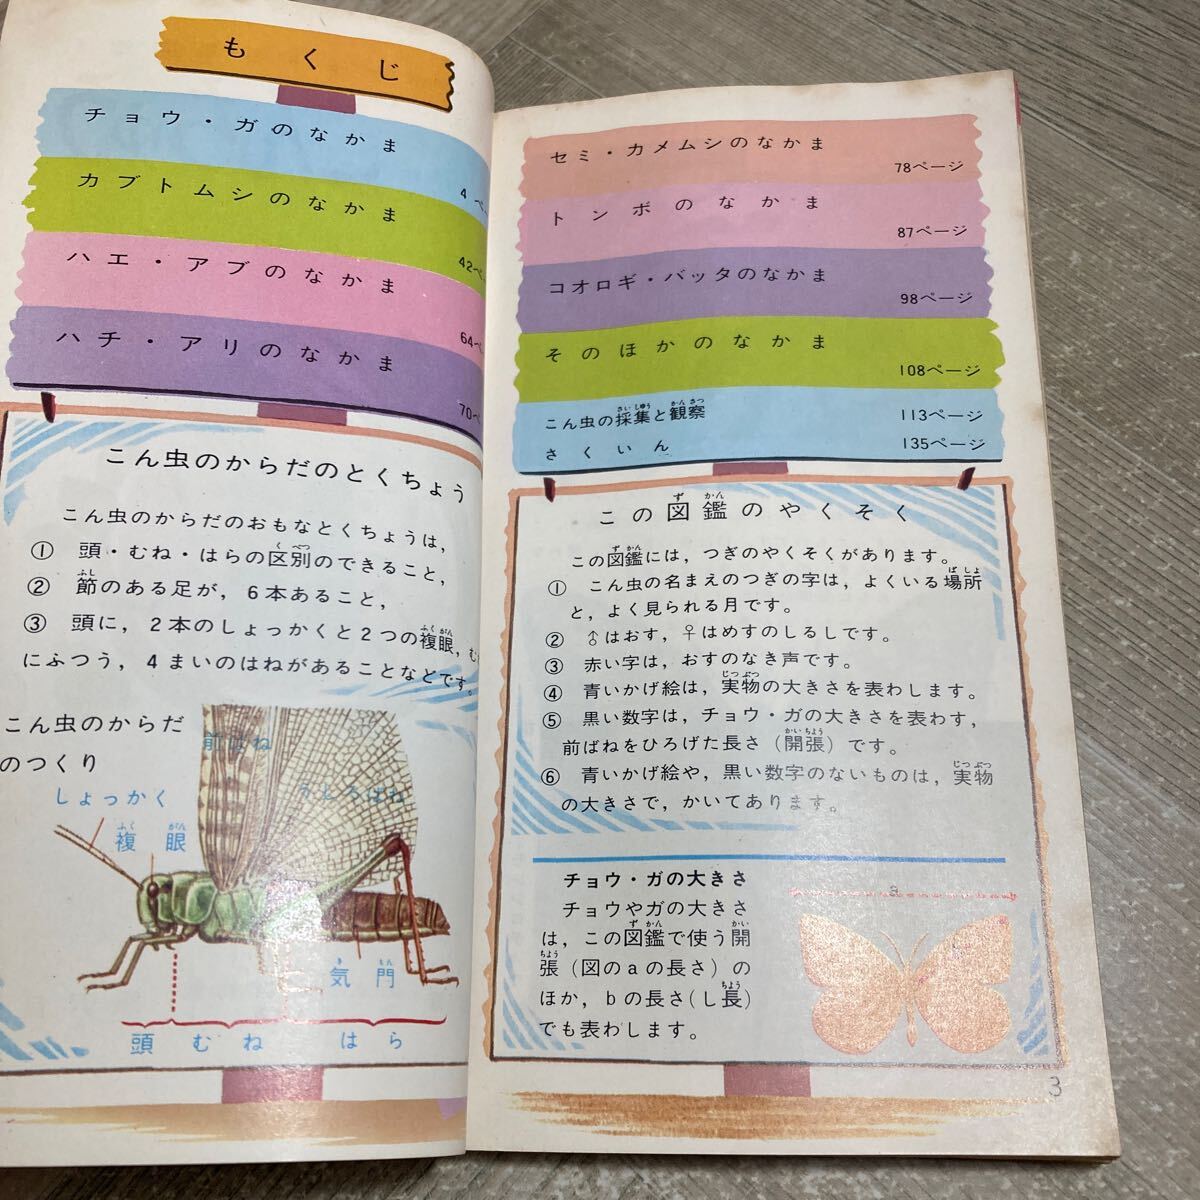 もくじ
チョウ・ガのなかま
4ペ
カブトムシのなかま
42ペ
ハエ・アブのなかま
64ペ
ハチ・アリのなかま
70ペ
こん虫のからだのとくちょう
こん虫のからだのおもなとくちょうは，
① 頭・むね・はらの区別のできること，
② 節のある足が，6本あること，
③ 頭に，2本のしょっかくと2つの複眼，む
にふつう，4まいのはねがあることなどです。
こん虫のからだ
のつくり
前ばね
うしろばね
しょっかく
複眼
気門
頭 むね はら
セミ・カメムシのなかま
78ページ
トンボのなかま
87ページ
コオロギ・バッタのなかま
98ページ
そのほかのなかま
108ページ
こん虫の採集と観察 113ページ
さくいん 135ページ
この図鑑のやくそく
この図鑑には，つぎのやくそくがあります。
① こん虫の名まえのつぎの字は，よくいる場所
と，よく見られる月です。
② ♂はおす，♀はめすのしるしです。
③ 赤い字は，おすのなき声です。
④ 青いかげ絵は，実物の大きさを表わします。
⑤ 黒い数字は，チョウ・ガの大きさを表わす，
前ばねをひろげた長さ（開張）です。
⑥ 青いかげ絵や，黒い数字のないものは，実物
の大きさで，かいてあります。
チョウ・ガの大きさ
チョウやガの大きさ
は，この図鑑で使う開
張（図のaの長さ）の
ほか，bの長さ（し長）
でも表わします。
a
3